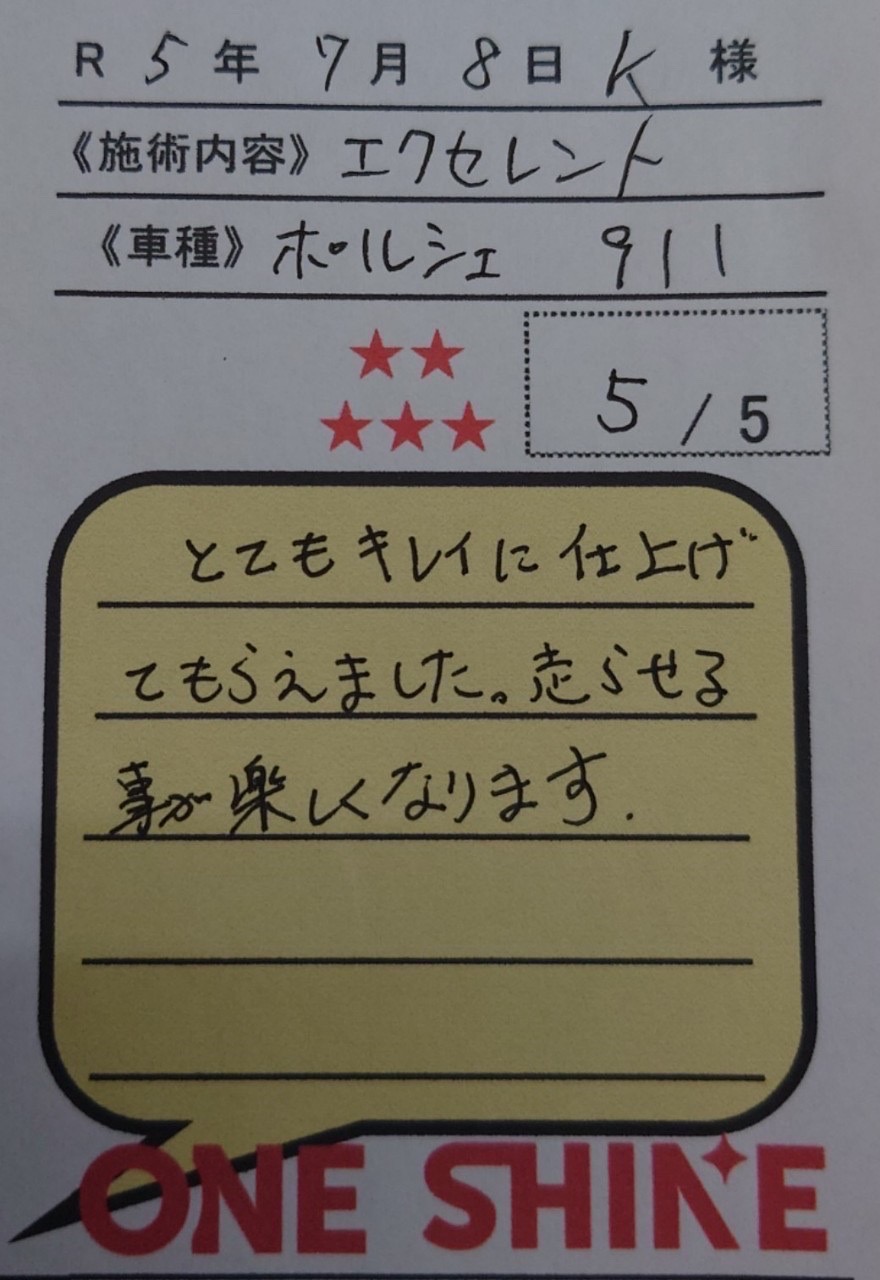 R 5 年 7 月 8 日 K 様
《施術内容》エクセレント
《車種》ポルシェ 911
5 / 5
とてもキレイに仕上げ
てもらえました。走らせる
事が楽しくなります.
ONE SHINE